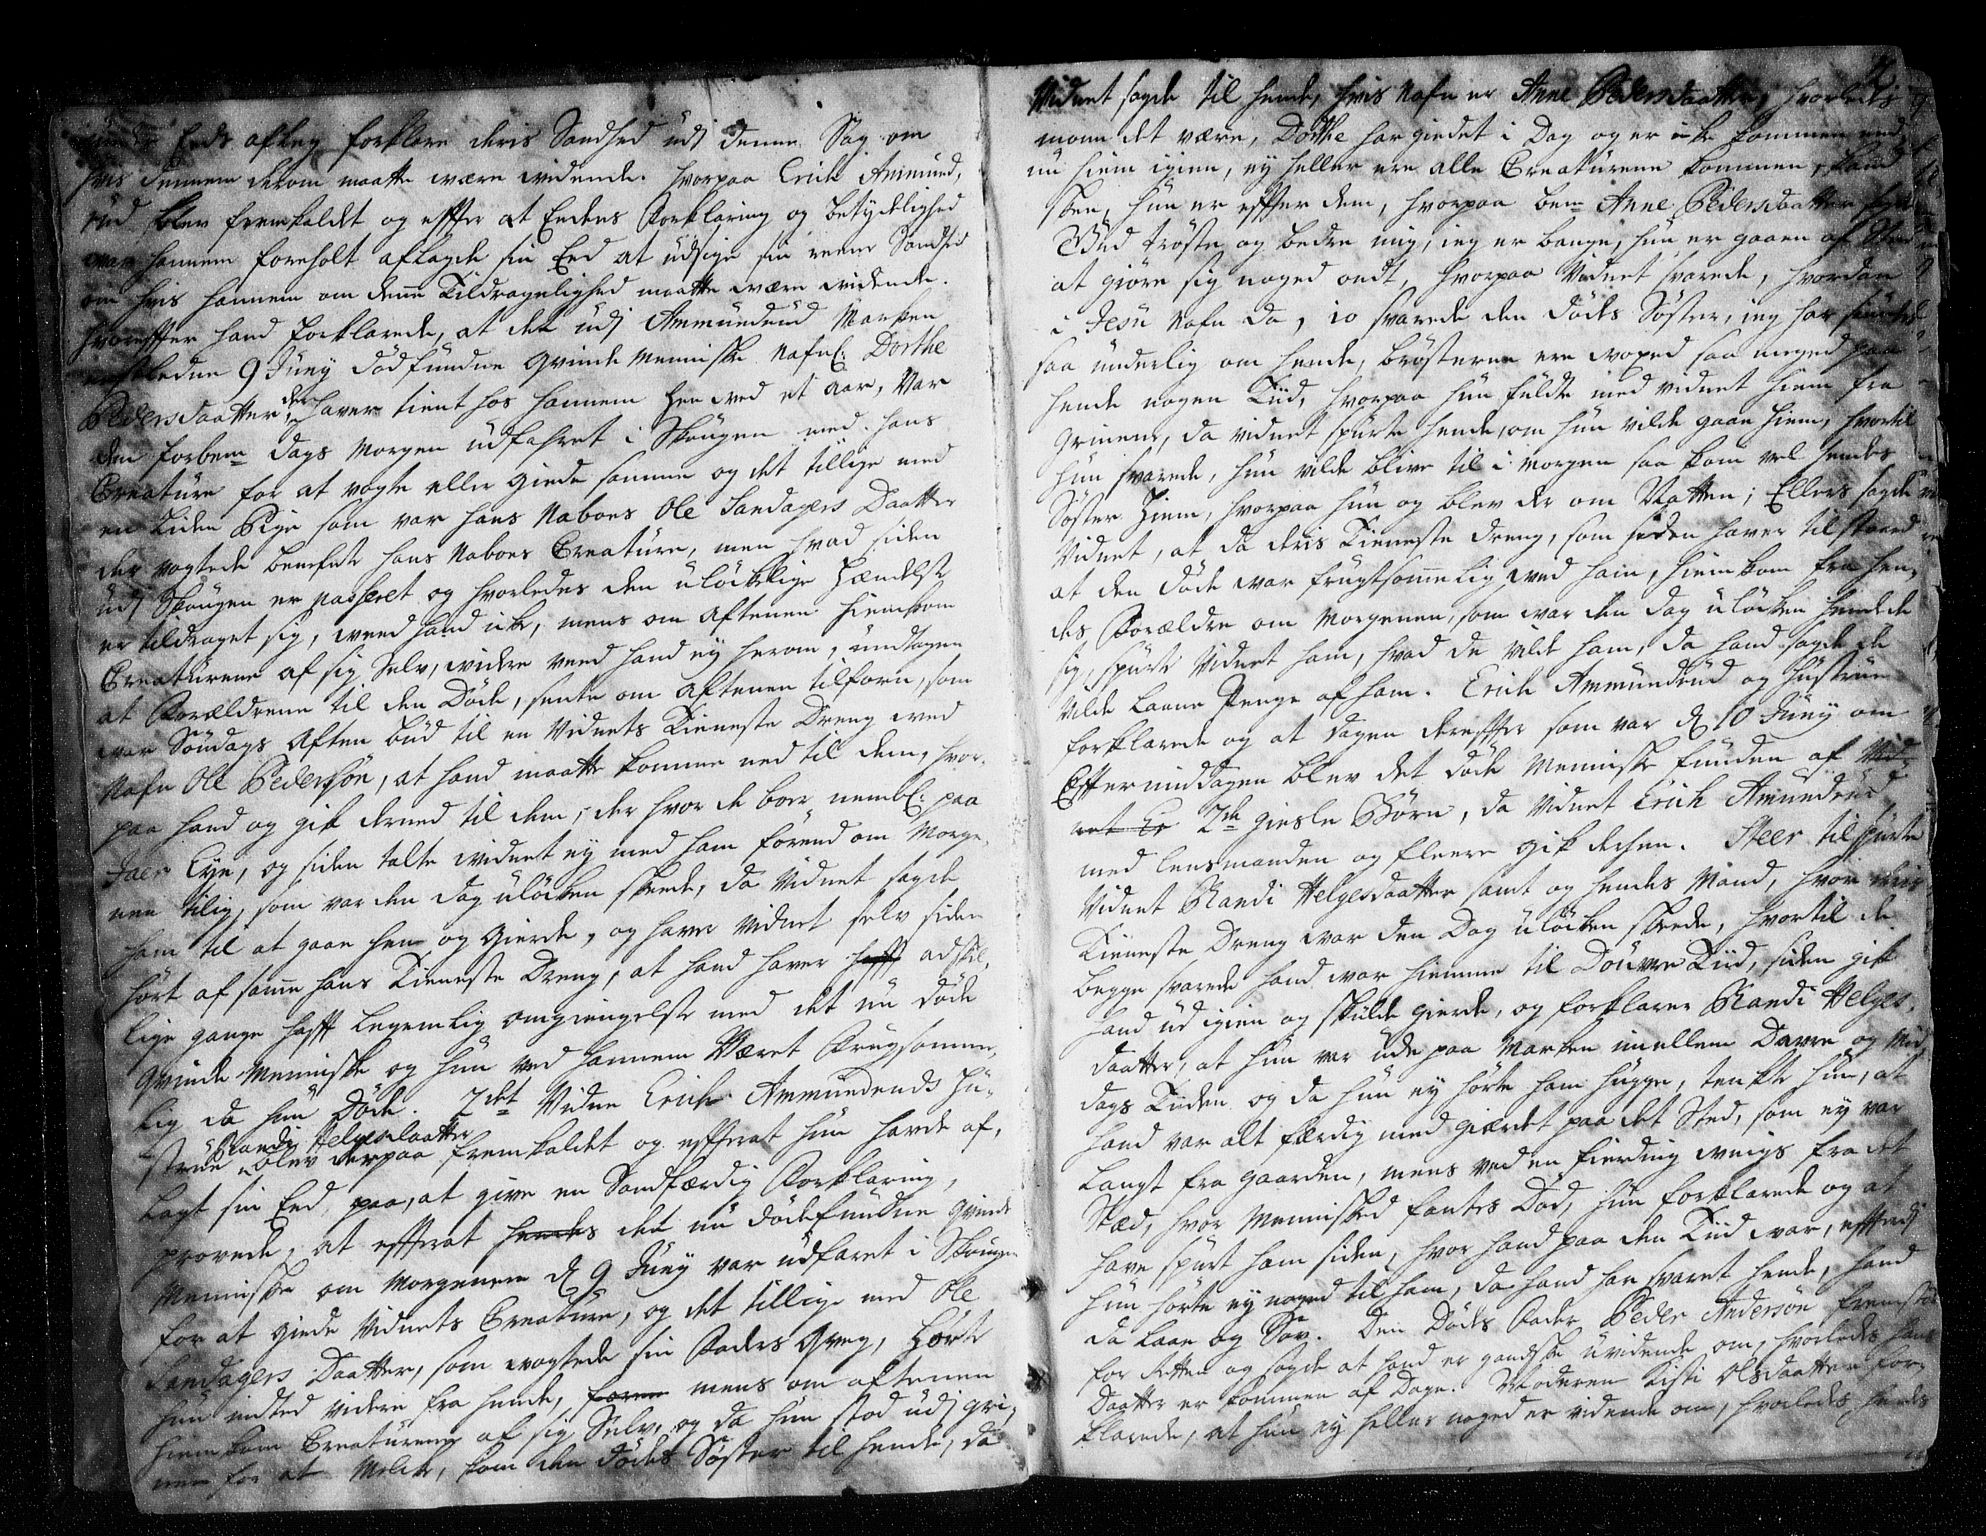 under Eeds aflæg forklare deris Sandhed udj denne Sag om
hvis dennem derom maatte være vidende. hvorpaa Erich Ammund,
rud blev fremkaldet og effter at Eedens Forklaring og betydelighed
var hannem foreholt aflagde sin Eed at udsige sin reene Sandhed
om hvis hannem om denne Tildragelighed maatte være vidende.
hvoreffter hand forklarede, at det udj Ammundrud Marken
9 Juny dödfundne qvinde Menniske Nafnl: Dorthe
Pedersdaatter der haver tient hos hannem hen ved et aar, Var
den forbem. dags Morgen udfahret i Skougen med hans
Creature for at vogte eller giede samme og det tillige med
en liden Pige som var hans Naboes Ole Sandagers Daatter
der vogtede benefnte hans Naboes Creature, men hvad siden
udj Skougen er passeret og hvorledes den ulökelige Hændelse
er tildraget sig, veed hand icke, mens om Aftenen hiemkom
Creaturene af sig Selv, videre veed hand ey herom, undtagen
at Forældrene til den Döde, sente om Aftenen tilforn, som
var Söndags Aften bud til en Vidnets Tieneste Dreng ved
Nafn Ole Pedersön, at hand maatte komme ned til dem, hvor-
paa hand og gik derned til dem, der hvor de boer nembl: paa
Jaer Eye, og siden talte vidnet ey med ham förend om Morge-
nen tilig, som var den dag ulöcken skede, da Vidnet sagde
ham til at gaae hen og gierde, og haver Vidnet selv siden
hört af samme hans Tieneste Dreng, at hand haver hafft adskil-
lige gange hafft legemlig omgiengelse med det nu döde
qvinde Menniske og hun ved hannem Været Frugsomme-
lig da hun döde. 2det Vidne Erich Ammundruds Hu-
strue Randi Helgesdaatter blev derpaa fremkaldet og effterat hun havde af-
lagt sin Eed paa, at give en Sandfærdig Forklaring,
provede, at effterat hendes det nu dödefundne qvinde
Menniske om Morgenen d 9 Juny var udfaret i Skougen
for at giede Vidnets Creature, og det tillige med Ole
Sandagers Daatter, som vogtede sin Faders Qveg, hörte
hun intted videre fra hende, mens om aftenen
hiemkom Creaturene af sig Selv, og da hun stod udj gri-
nen for at Melke, kom den dödes Söster til hende, da
2
Vidnet sagde til hende, hvis Nafn er Anne Pedersdaatter, hvorledes
monn det være, Dorthe har giedet i Dag og er icke kommen end
nu hiem igien, ey heller ere alle Creaturene kommen,
skee, hun er effter dem, hvorpaa bem. Anne Pedersdaatter
Gud tröste og bedre mig, ieg er bange, hun er gaaen af Sted
at giöre sig noged ondt, hvorpaa Vidnet svarede, hvordan
i Jesu Nafn da, io svarede den dödes Söster, ieg har
saa underlig om hende, brösterne ere voxed saa meged paa
hende nogen Tiid, hvorpaa hun fuldte med vidnet hiem fra
Grinene, da vidnet spurte hende, om hun vilde gaae hiem, hvortil
hun svarede, hun vilde blive til i Morgen saa kom vel hendes
Söster Hiem, hvorpaa hun og blev der om Natten; Ellers sagde
Vidnet, at da deris Tieneste Dreng, som siden haver tilstaaed
at den döde var frugtsommelig ved ham, hiemkom fra hen-
des Forældre om Morgenen, som var den dag ulöcken hendede
sig, spurte Vidnet ham, hvad de vilde ham, da hand sagde de
vilde laane Penge af ham. Erich Ammundrud og Hustrue
forklarede og at dagen dereffter som var d 10 Juny om
Effter middagen blev det döde Menniske funden af Vid-
net Er 2de giesle Börn, da Vidnet Erich Amundrud
med lensmanden og fleere gik dehen. Steer tilspurte
Vidnet Randi Helgesdaatter samt og hendes Mand, hvor
Tieneste Dreng var den Dag ulöcken skede, hvortil de
begge svarede hand var hiemme til Douvre Tiid, siden gik
hand ud igien og skulde gierde, og forklarer Randi Helges-
daatter, at hun var ude paa Marken imellem Davre og Mid-
dags Tiden og da hun ey hörte ham hugge, tenkte hun, at
hand var alt færdig med giærdet paa det Sted, som ey var
langt fra gaarden, mens ved en fierding veigs fra det
Stæd, hvor Mennisked fantes död, hun forklarede og at
have spurt ham siden, hvor hand paa den Tiid var, efftersom
hun hörte ey noged til ham, da hand har svaret hende, hand
da laae og Sov. Den Dödes Fader Peder Andersön fremstod
for Retten og sagde at hand er gandske uvidende om, hvorledes hans
Daatter er kommen af Dage. Moderen Kisti Olsdaatter for-
klarede, at hun ey heller noged er vidende om, hvorledes hendes